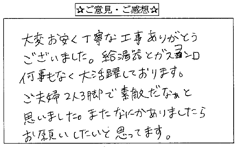 ☆ご意見・ご感想☆
大変お安く丁寧な工事ありがとう
ございました。給湯器とガスコンロ
何事もなく大活躍しております。
ご夫婦2人3脚で素敵だなぁと
思いました。またなにかありましたら
お願いしたいと思ってます。